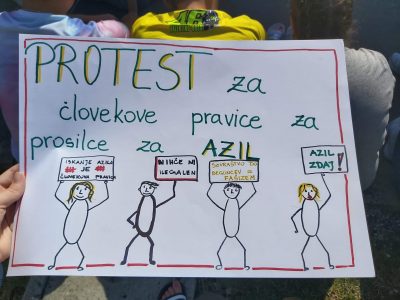 PROTEST za
človekove pravice za
prosilce za AZIL
ISKANJE AZILA
JE
ČLOVEKOVA PRAVICA
NIHČE NI
ILEGALEN
SOVRAŠTVO DO
BEGUNCEV JE
FAŠIZEM
AZIL
ZDAJ!